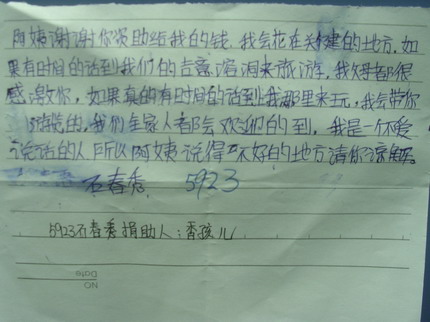 阿姨谢谢你资助给我的钱，我会花在关键的地方，如
果有时间的话到我们的吉首 来旅游，我父母都很
感激你，如果真的有时间的话到我那里来玩，我会带你
的，我们全家人都会欢迎你的到，我是一个不爱
说话的人所以阿姨说得不好的地方请你谅解。
石春秀 5923
5923石春秀捐助人：香孩儿
NO
Date